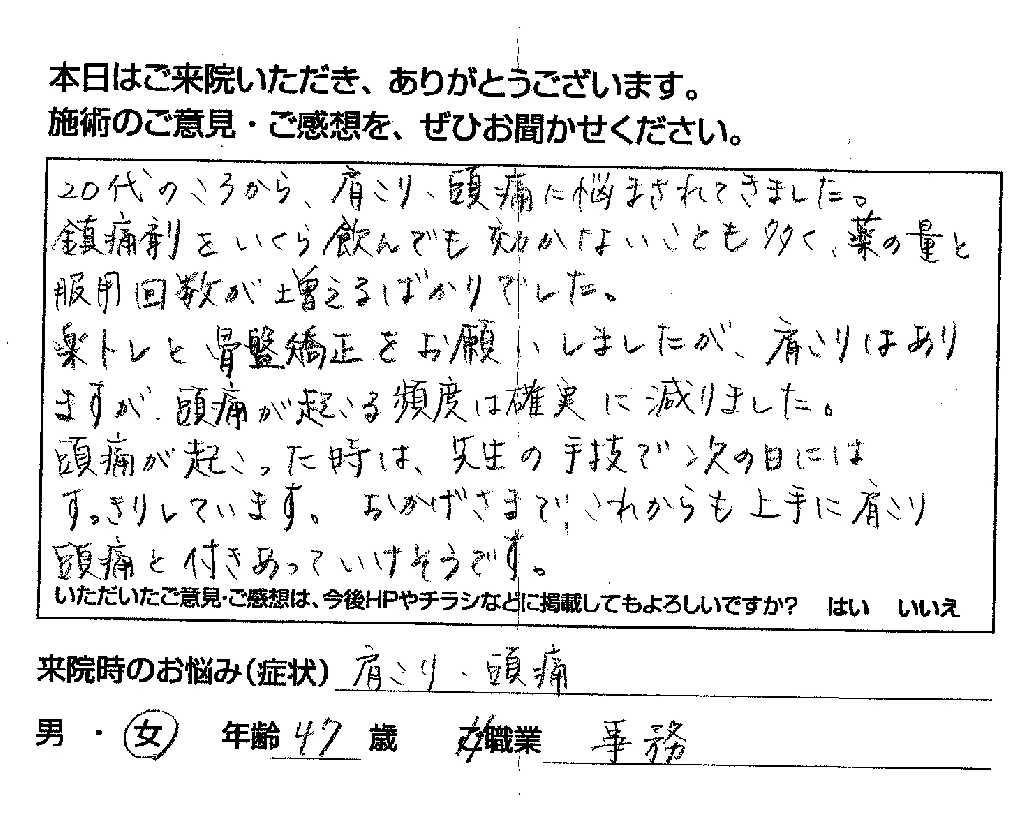 本日はご来院いただき、ありがとうございます。
施術のご意見・ご感想を、ぜひお聞かせください。
20代のころから、肩こり、頭痛に悩まされてきました。
鎮痛剤をいくら飲んでも効かないことも多く、薬の量と
服用回数が増えるばかりでした。
楽トレと骨盤矯正をお願いしましたが、肩こりはあり
ますが、頭痛が起こる頻度は確実に減りました。
頭痛が起こった時は、先生の手技で次の日には
すっきりしています。おかげさまで、これからも上手に肩こり
頭痛と付きあっていけそうです。
いただいたご意見・ご感想は、今後HPやチラシなどに掲載してもよろしいですか？ はい いいえ
来院時のお悩み（症状） 肩こり、頭痛
男 ・ 女 年齢 47 歳 職業 事務